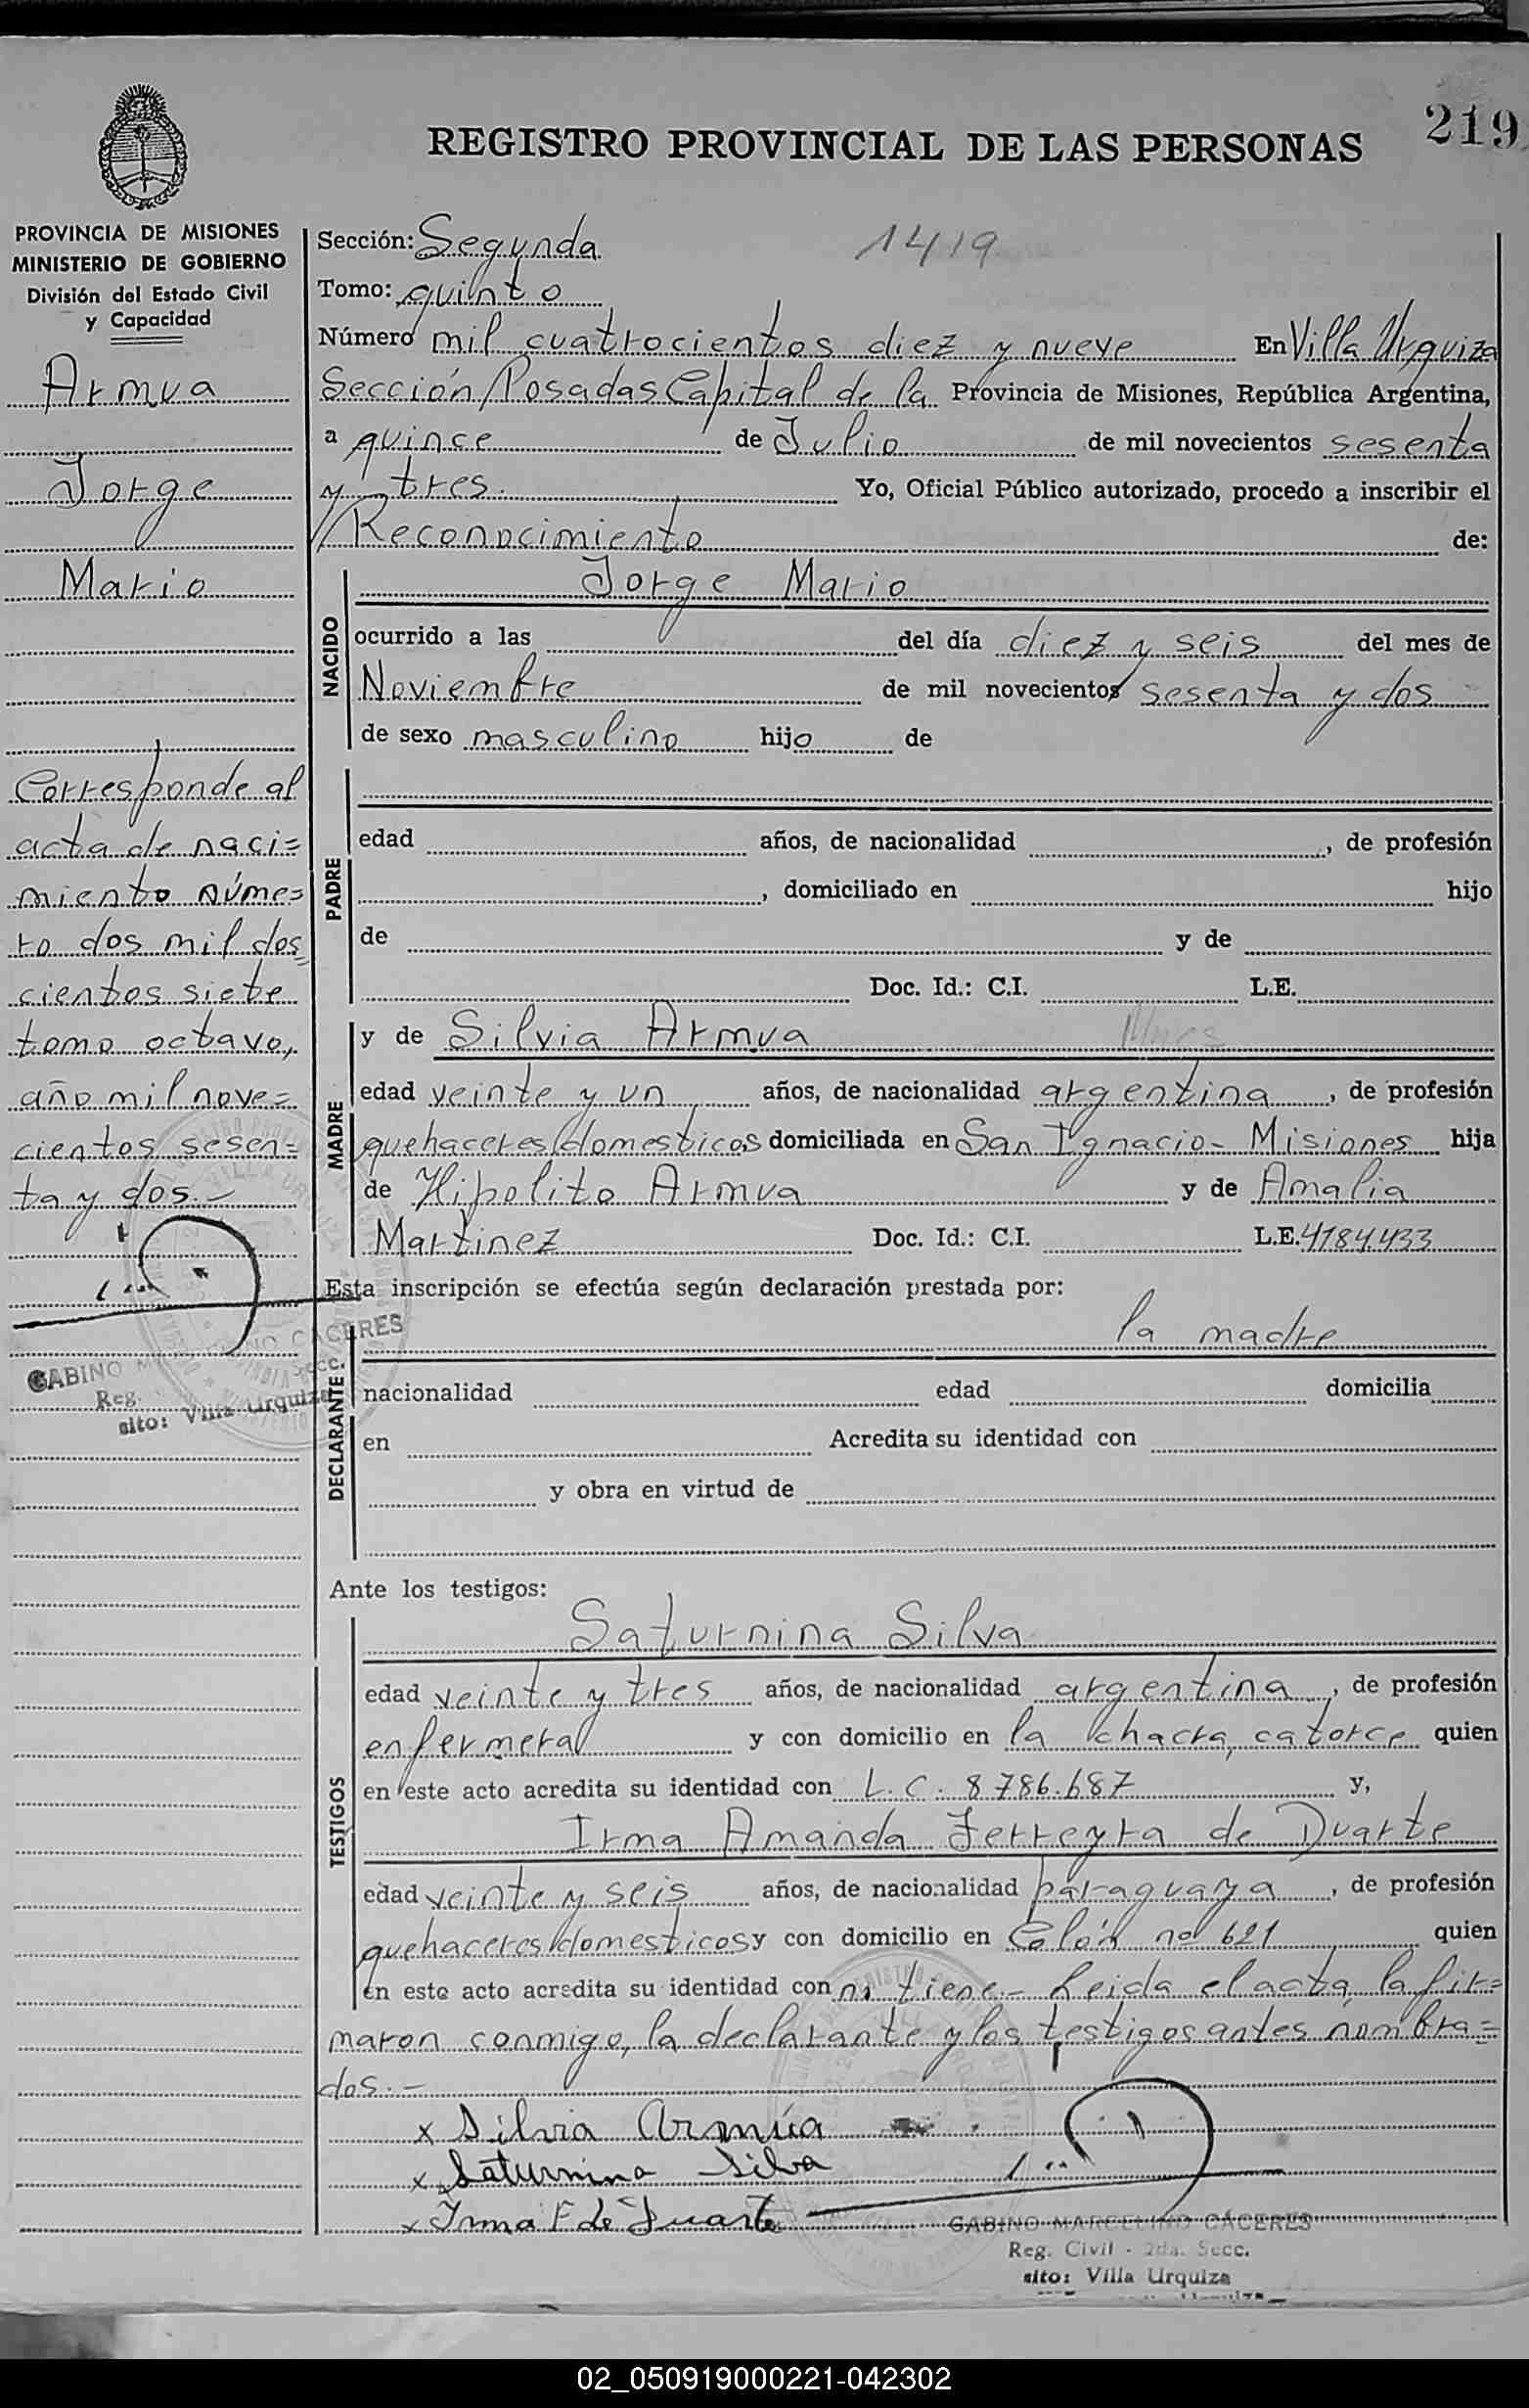 219
REGISTRO PROVINCIAL DE LAS PERSONAS
PROVINCIA DE MISIONES
MINISTERIO DE GOBIERNO
División del Estado Civil
y Capacidad
Armua
Jorge
Mario
Corresponde al
acta de naci=
miento núme=
ro dos mil dos
cientos siete
tomo octavo,
año mil nove=
cientos sesen=
ta y dos.-
GABINO CACERES
Reg. Secc.
sito: Villa Urquiza
Sección: Segunda 1419
Tomo: quinto
Número mil cuatrocientos diez y nueve En Villa Urquiza
Sección, Posadas Capital de la Provincia de Misiones, República Argentina,
a quince de Julio de mil novecientos sesenta
y tres. Yo, Oficial Público autorizado, procedo a inscribir el
Reconocimiento de:
NACIDO
Jorge Mario
ocurrido a las del día diez y seis del mes de
Noviembre de mil novecientos sesenta y dos
de sexo masculino hijo de
PADRE
edad años, de nacionalidad , de profesión
, domiciliado en hijo
de y de
Doc. Id.: C.I. L.E.
MADRE
y de Silvia Armua
edad veinte y un años, de nacionalidad argentina, de profesión
quehaceres domesticos domiciliada en San Ignacio- Misiones hija
de Hipolito Armua y de Amalia
Martinez Doc. Id.: C.I. L.E. 4184.433
Esta inscripción se efectúa según declaración prestada por:
DECLARANTE
la madre
nacionalidad edad domicilia
en Acredita su identidad con
y obra en virtud de
Ante los testigos:
TESTIGOS
Saturnina Silva
edad veinte y tres años, de nacionalidad argentina, de profesión
enfermera y con domicilio en la chacra catorce quien
en este acto acredita su identidad con L.C. 8786.687 y,
Irma Amanda Ferreyra de Duarte
edad veinte y seis años, de nacionalidad paraguaya, de profesión
quehaceres domesticos y con domicilio en Colón no 621 quien
en este acto acredita su identidad con no tiene.- Leida el acta, la fir=
maron conmigo, la declarante y los testigos antes nombra=
dos.-
x Silvia Armúa
x Saturnina Silva
x Irma F de Duarte
GABINO MARCELINO CÁCERES
Reg. Civil - 2da. Secc.
sito: Villa Urquiza
02_050919000221-042302